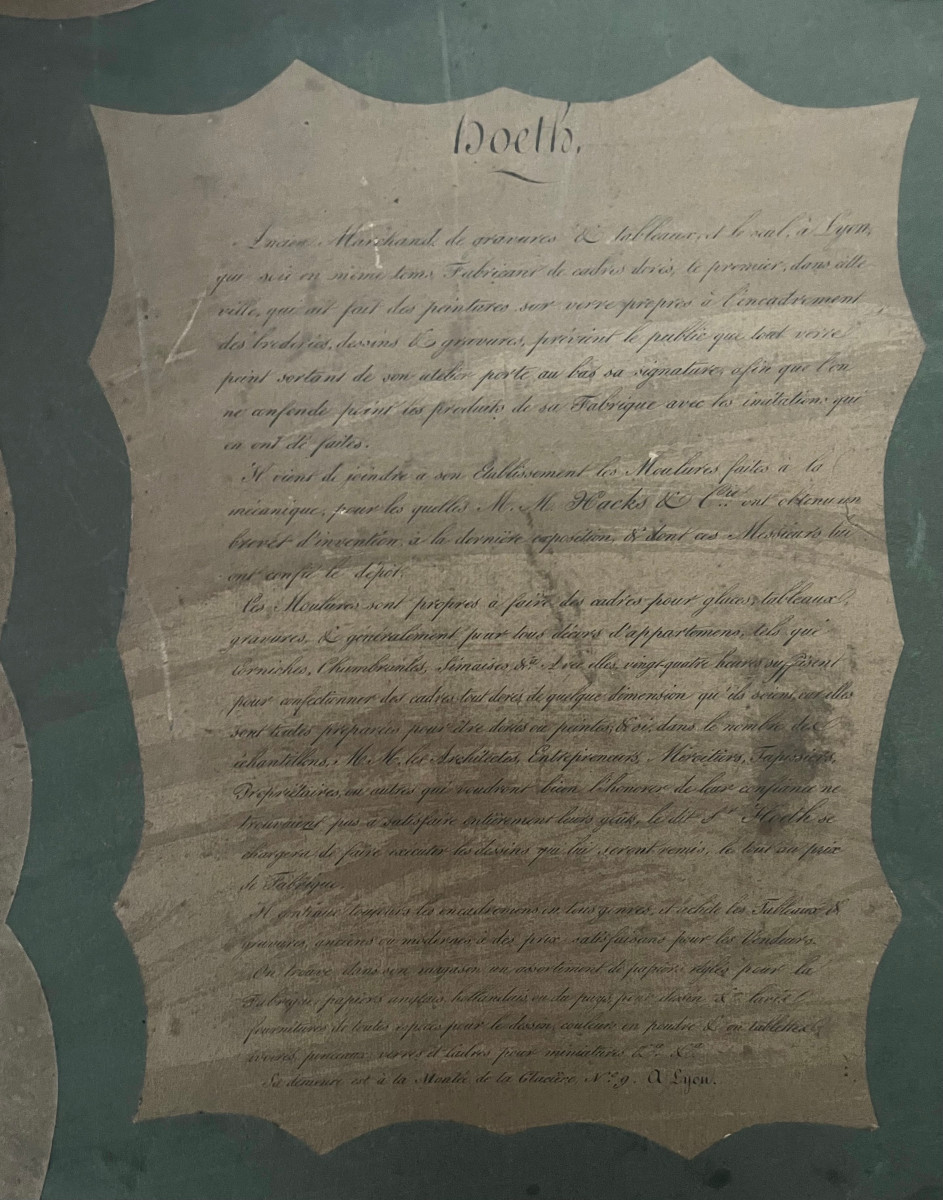 Hoeth.
Ancien Marchand de gravures & tableaux, et le seul, à Lyon,
qui soit en même tems Fabricant de cadres dorés, le premier, dans cette
ville, qui ait fait des peintures sur verre propres à l'encadrement
des broderies, dessins & gravures, prévient le public que tout verre
peint sortant de son atelier porte au bas sa signature, afin que l'on
ne confonde point les produits de sa Fabrique avec les imitations qui
en ont été faites.
Il vient de joindre a son Etablissement les Moulures faites à la
mécanique, pour les quelles M. M. Hacks & C.ie ont obtenu un
brevet d'invention à la dernière exposition, & dont ces Messieurs lui
ont confié le dépôt.
Ces Moulures sont propres à faire des cadres pour glaces, tableaux,
gravures, & généralement pour tous décors d'appartemens, tels que
Corniches, Chambranles, Simaises, &a. Avec elles, vingt-quatre heures suffisent
pour confectionner des cadres tout dorés, de quelque dimension qu'ils soient, car elles
sont toutes préparées pour être dorées ou peintes; & si, dans le nombre des
échantillons, M. M. les Architectes, Entrepreneurs, Miroitiers, Tapissiers,
Propriétaires, ou autres qui voudront bien l'honorer de leur confiance ne
trouvoient pas à satisfaire entièrement leurs goûts, le dit S.r Hoeth se
chargera de faire exécuter les dessins qui lui seront remis, le tout au prix
de Fabrique.
Il continue toujours les encadremens en tous genres, et achète les Tableaux &
gravures, anciens ou modernes à des prix satisfaisans pour les Vendeurs.
On trouve dans son magasin un assortiment de papiers réglés pour la
Fabrique, papiers anglais, hollandais ou du pays, pour dessin &a.
fournitures de toutes espèces pour le dessin, couleurs en poudre & en tablettes,
pinceaux, verres et cadres pour miniatures &a. &a.
Sa demeure est à la Montée de la Glacière, N.o 9. A Lyon.